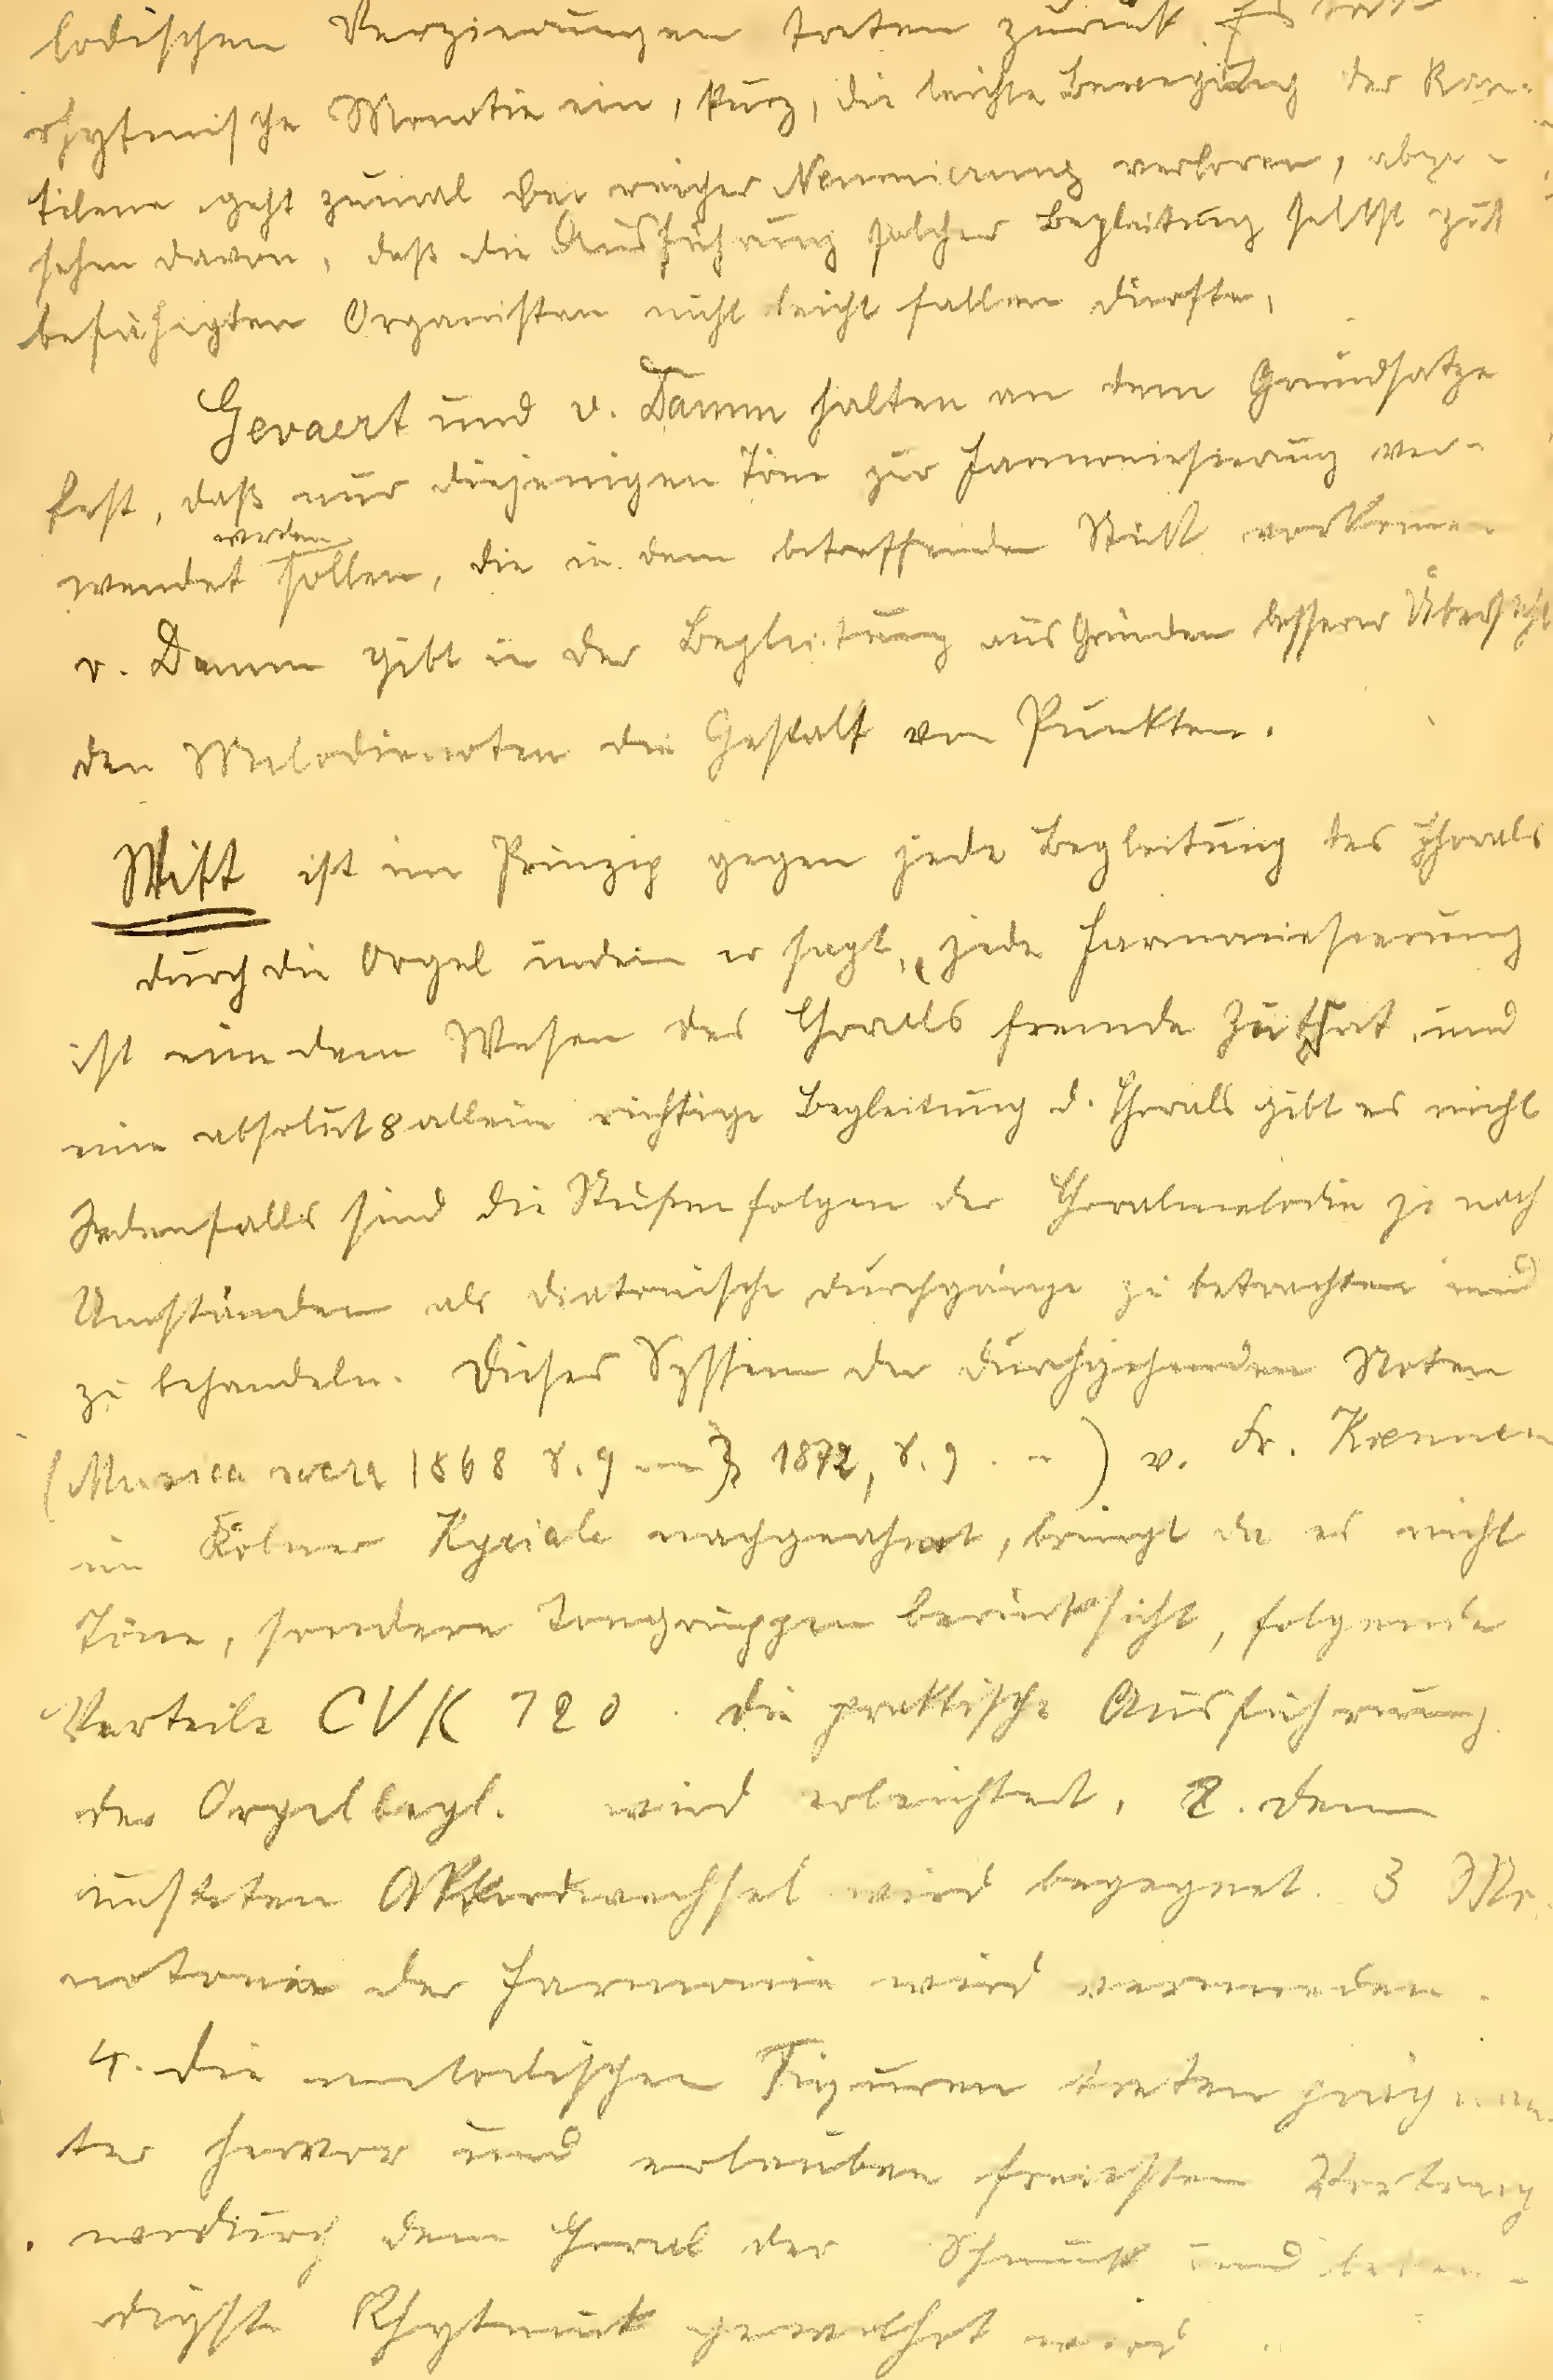 lodischen Verzierungen treten zurück. Es tritt
rhytmische Monotie ein, kurz, die leichte Bewegung der Kan-
tilene geht zumal bei reicher Neumierung verloren, abge-
sehen davon, daß die Ausführung solcher Begleitung selbst gut
befähigten Organisten nicht leicht fallen dürfte,
Gevaert und v. Damm halten an dem Grundsatze
fest, daß nur diejenigen Töne zur Harmonisierung ver-
wendet werden sollen, die in dem betreffenden Stück vorkommen
v. Damm gibt in der Begleitung aus Gründen besserer Übersicht
den Melodienoten die Gestalt von Punkten.
Witt ist im Prinzip gegen jede Begleitung des Chorals
durch die Orgel indem er sagt, „jede Harmonisierung
ist eine dem Wesen des Chorals fremde Zuthat, und
eine absolut & allein richtige Begleitung d. Chorals gibt es nicht
Jedenfalls sind die Stufenfolgen der Choralmelodie je nach
Umständen als diatonische Durchgänge zu betrachten und
zu behandeln. Dieses System der durchgehenden Noten
(Musica sacra 1868 S. 9 1872, S. 9 ) v. Fr. Koenen
im Kölner Kyriale nachgeahmt, bringt da es nicht
Töne, sondern Tongruppen berücksicht, folgende
Vorteile CVK 720. Die praktische Ausführung
der Orgelbegl. wird erleichtert, 2. dem
unsteten Akkordwechsel wird begegnet. 3 Mo-
notonie der Harmonie wird vermieden.
4. Die melodischen Figuren treten prägnan-
ter hervor und erlauben freiesten Vortrag
wodurch dem Choral der Schmuck und leben-
digste Rhytmik gewahrt wird.